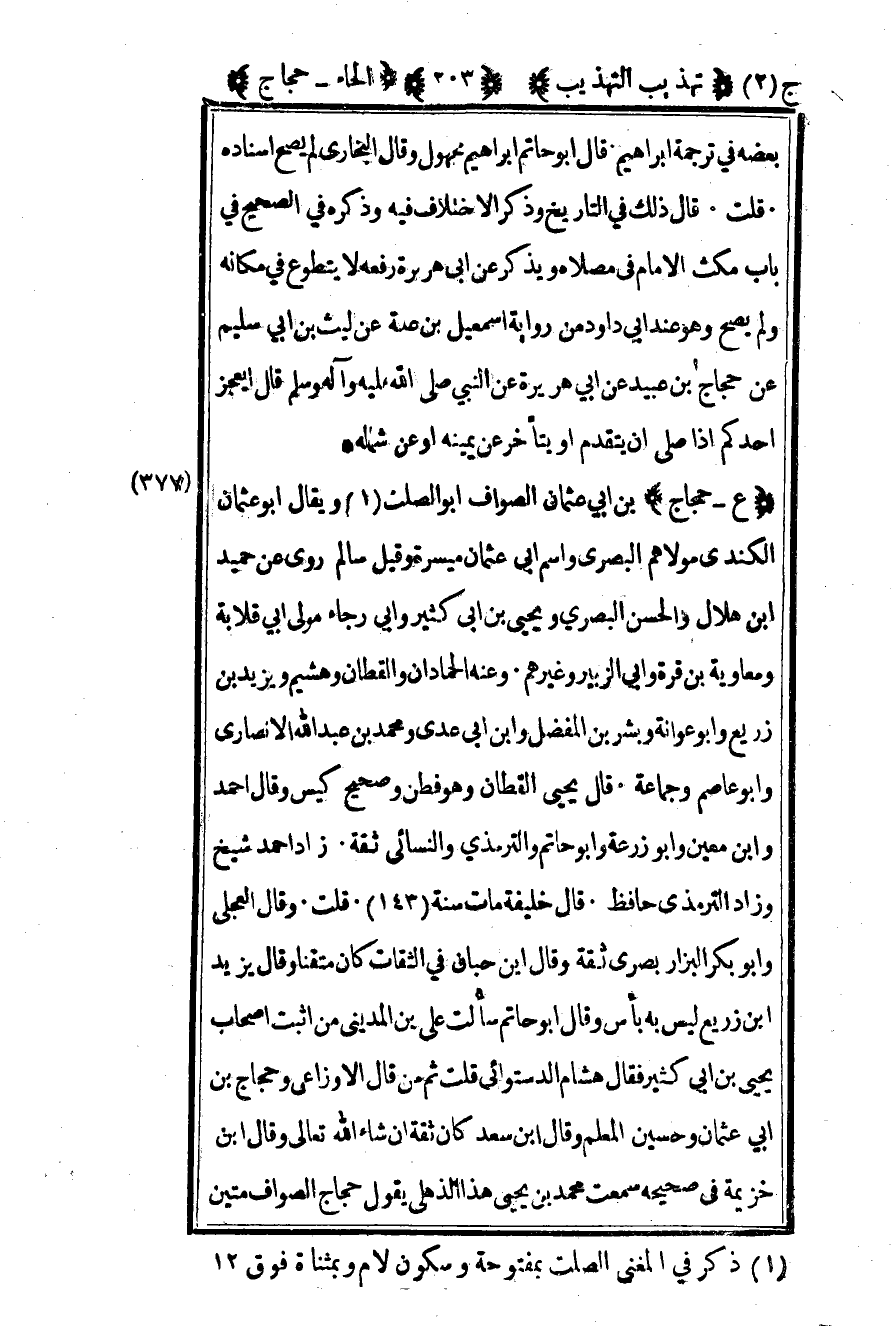 ج (٢) ﴿ تهذيب التهذيب ﴾ ﴿ ٢٠٣ ﴾ ﴿ الحاء ـ حجاج ﴾
بعضه في ترجمة ابراهيم ٠ قال ابو حاتم ابراهيم مجهول وقال البخارى لم يصح اسناده
٠ قلت ٠ قال ذلك في التاريخ وذكر الاختلاف فيه وذكره في الصحيح في
باب مكث الامام فى مصلاه ويذكر عن ابى هريرة رفعه لا يتطوع في مكانه
ولم يصح وهو عند ابي داود من رواية اسمعيل بن علية عن ليث بن ابي سليم
عن حجاج بن عبيد عن ابي هريرة عن النبي صلى الله عليه وآله وسلم قال ايعجز
احدكم اذا صلى ان يتقدم او يتأخر عن يمينه او عن شماله ٠
(٣٧٧) ﴿ ع ـ حجاج ﴾ بن ابي عثمان الصواف ابو الصلت (١) ويقال ابو عثمان
الكندى مولاهم البصرى واسم ابي عثمان ميسرة وقيل سالم روى عن حميد
ابن هلال والحسن البصري ويحيى بن ابى كثير وابي رجاء مولى ابي قلابة
ومعاوية بن قرة وابي الزبير وغيرهم ٠ وعنه الحمادان والقطان وهشيم ويزيد بن
زريع وابو عوانة وبشر بن المفضل وابن ابى عدى ومحمد بن عبدالله الانصارى
وابو عاصم وجماعة ٠ قال يحيى القطان وهو فطن وصحيح كيس وقال احمد
وابن معين وابو زرعة وابو حاتم والترمذي والنسائى ثقة ٠ زاد احمد شيخ
وزاد الترمذى حافظ ٠ قال خليفة مات سنة (١٤٣) ٠ قلت ٠ وقال العجلى
وابو بكر البزار بصرى ثقة وقال ابن حبان في الثقات كان متقنا وقال يزيد
ابن زريع ليس به بأس وقال ابو حاتم سألت على بن المدينى من اثبت اصحاب
يحيى بن ابي كثير فقال هشام الدستوائى قلت ثم من قال الاوزاعى وحجاج بن
ابي عثمان وحسين المعلم وقال ابن سعد كان ثقة ان شاء الله تعالى وقال ابن
خزيمة فى صحيحه سمعت محمد بن يحيى هذا الذهلى يقول حجاج الصواف متين
(١) ذكر في المغنى الصلت بمفتوحة وسكون لام وبمثناة فوق ١٢